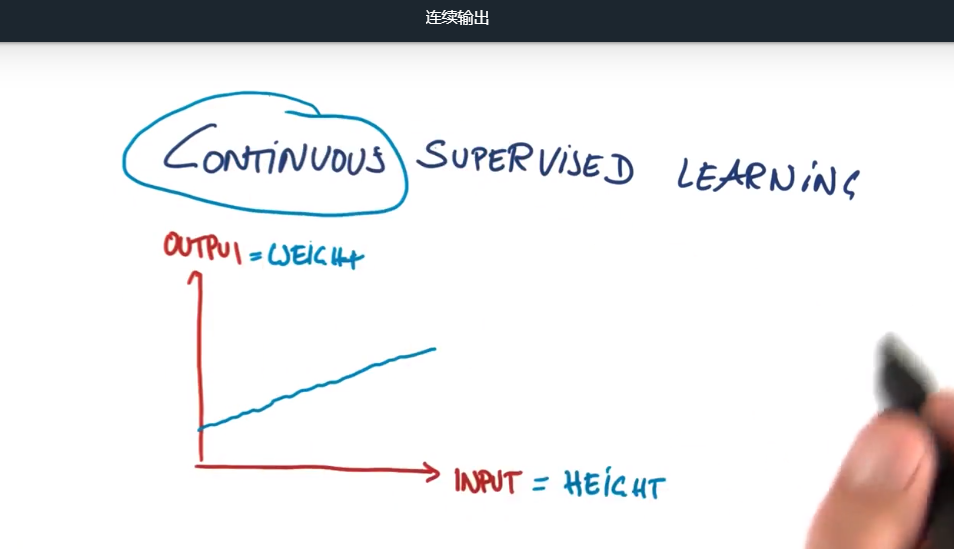 连续输出
CONTINUOUS SUPERVISED LEARNING
OUTPUT = WEIGHT
INPUT = HEIGHT